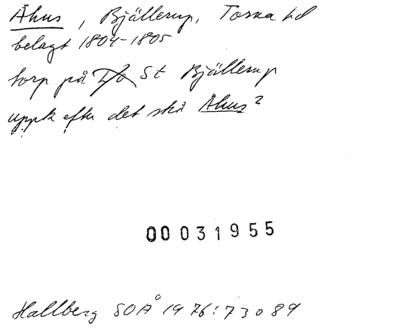 Åhus, Bjällerup, Torna hd
belagt 1804-1805
torp på St Bjällerup
uppk efter det skå Åhus?
00031955
Hallberg SOÅ 1976:73 o 89